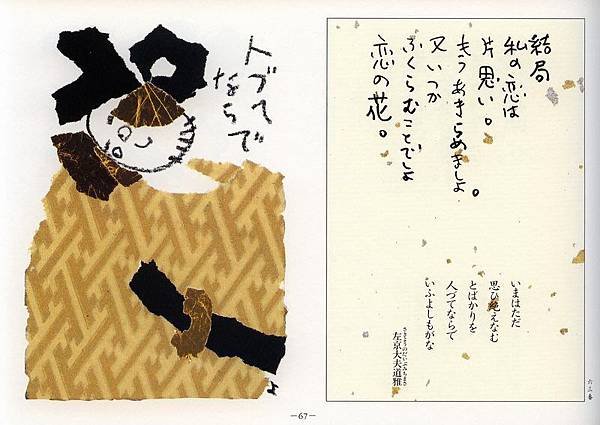 結局
私の恋は
片思い。
もうあきらめましょ。
又いつか
ふくらむことでしょ
恋の花。
いまはただ
思ひ絶えなむ
とばかりを
人づてならで
いふよしもがな
左京大夫道雅
六三番
人づて
ならで
—67—